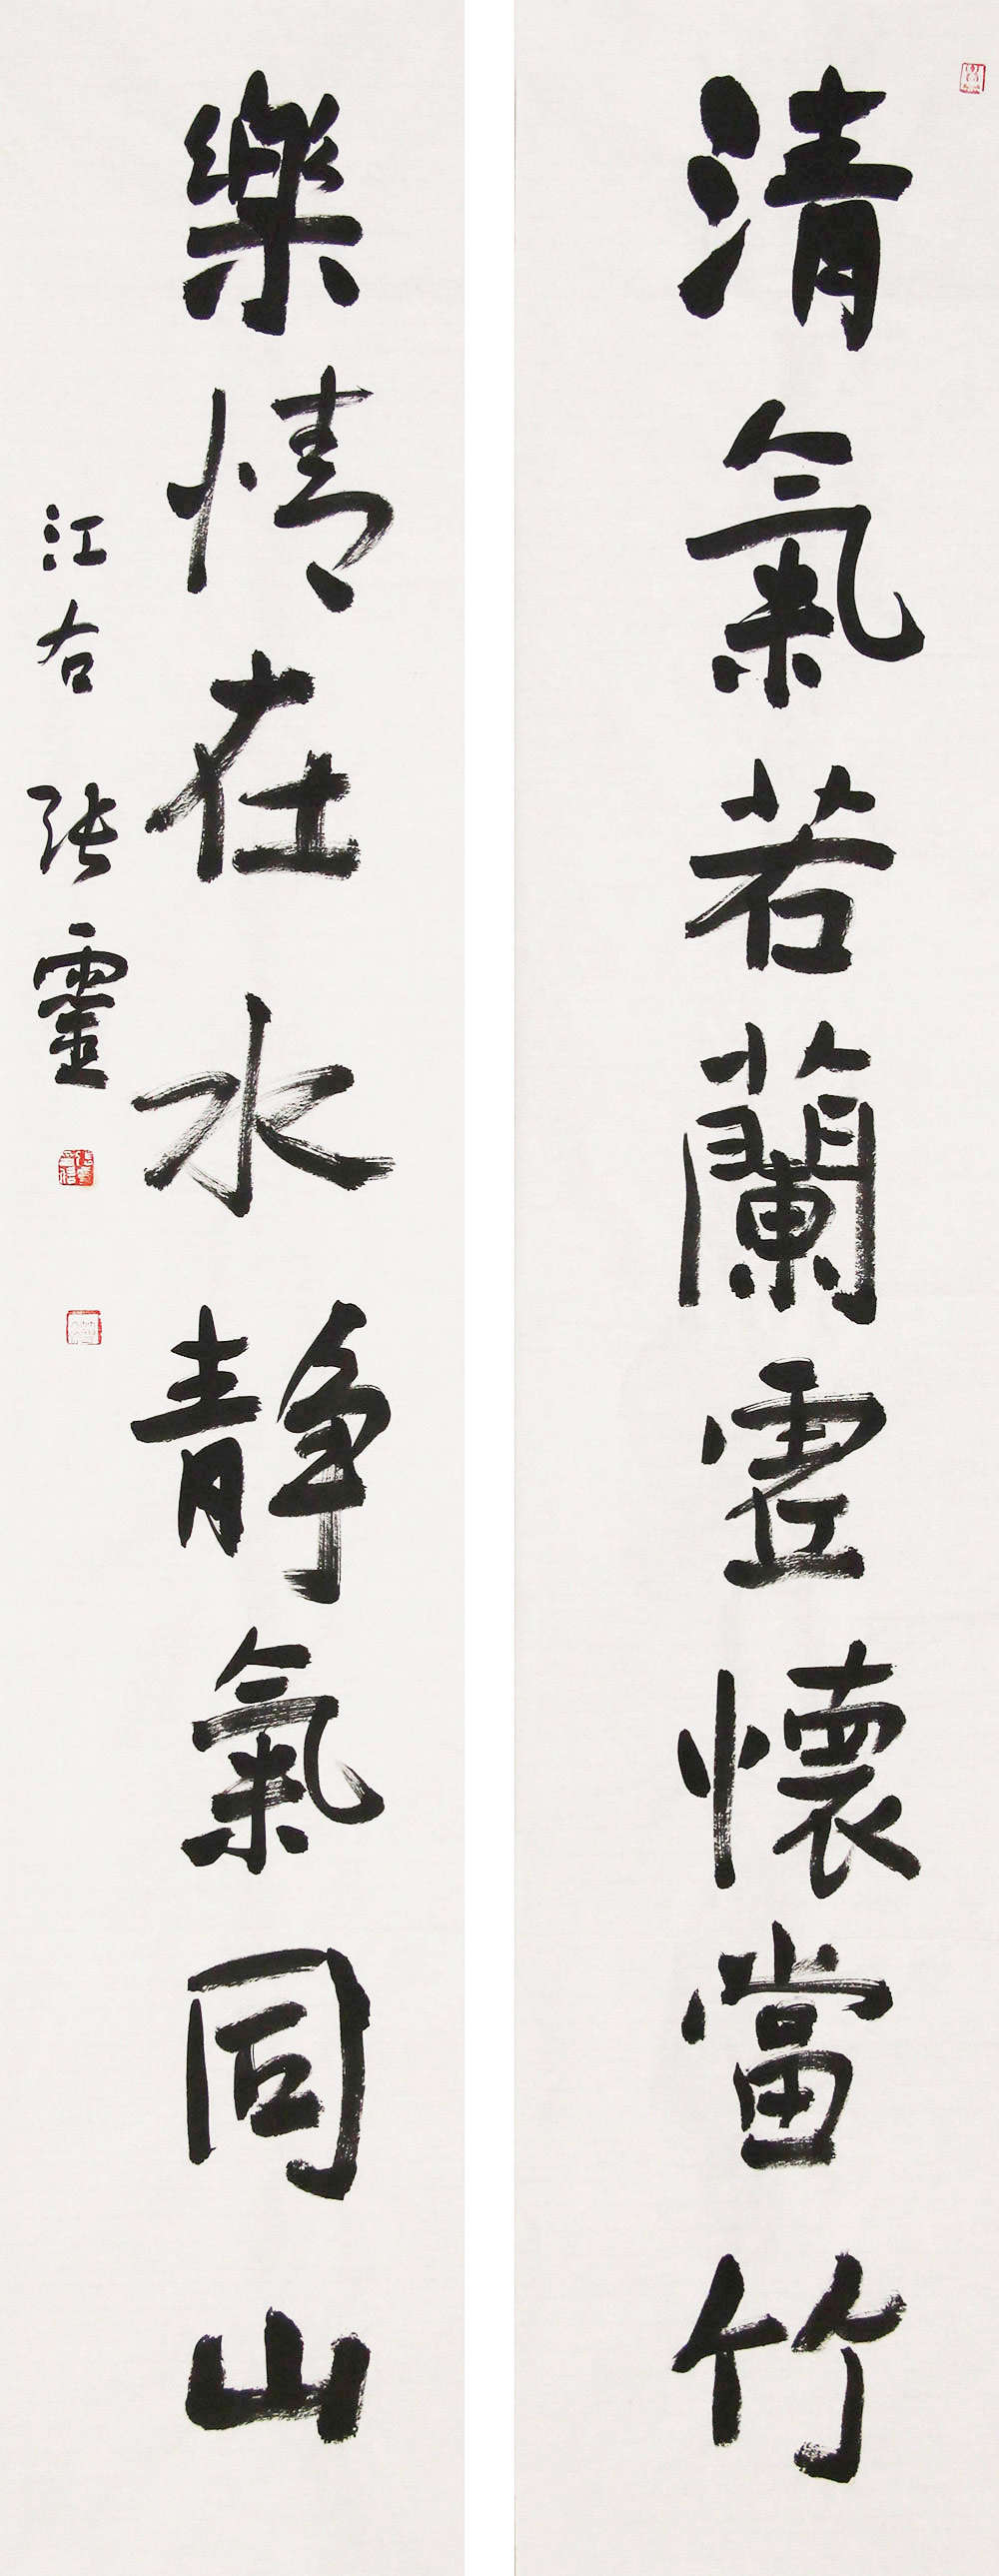 清氣若蘭虛懷當竹
樂情在水靜氣同山
江右張靈